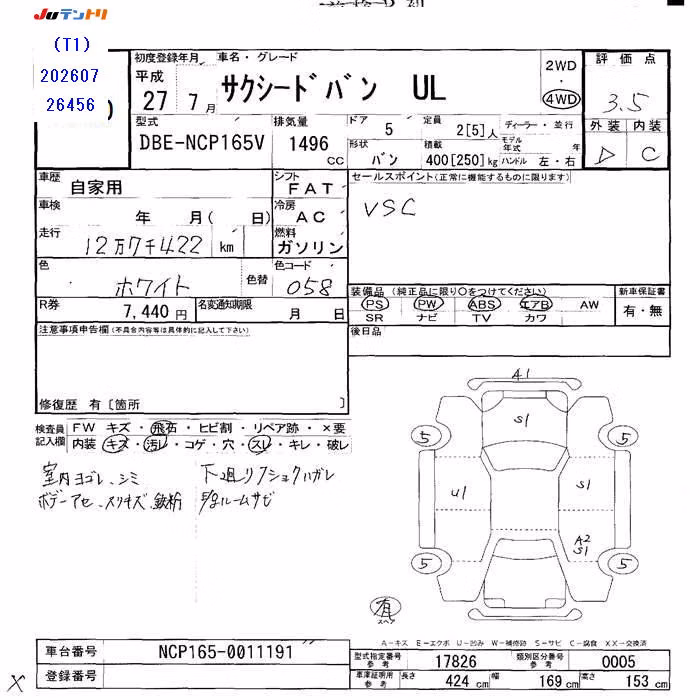 JUテントリ
(T1)
202607
26456
初度登録年月
平成
27 7月
車名・グレード
サクシードバン UL
2WD
・
4WD
評価点
3.5
外装 内装
C
型式
DBE-NCP165V
排気量
1496
CC
ドア
5
定員
2[5]人
ディーラー・並行
形状
バン
積載
400[250]kg
モデル年式 年
ハンドル 左・右
車歴
自家用
シフト
FAT
車検
年 月( 日)
冷房
AC
走行
12万7千422 km
燃料
ガソリン
色
ホワイト
色替
色コード
058
R券
7,440円
名変通知期限
月 日
セールスポイント(正常に機能するものに限ります)
VSC
装備品 (純正品に限り○をつけてください)
PS PW ABS エアB AW
SR ナビ TV カワ
新車保証書
有・無
後日品
注意事項申告欄(不具合内容等は具体的に記入して下さい)
修復歴 有[箇所 ]
検査員記入欄
FW キズ・飛石・ヒビ割・リペア跡・×要
内装 キズ・汚レ・コゲ・穴・スレ・キレ・破レ
室内ヨゴレ、シミ
ボデーアセ、スリキズ、鉄粉
下廻リフショクハガレ
ルームサビ
A1
S1
5
5
U1
S1
A2
S1
5
5
有
スペア
A-キズ E-エクボ U-凹み W-補修跡 S-サビ C-腐食 XX-交換済
車台番号
NCP165-0011191
登録番号
型式指定番号
参考
17826
類別区分番号
参考
0005
車庫証明用
参考
長さ 424 cm 幅 169 cm 高さ 153 cm